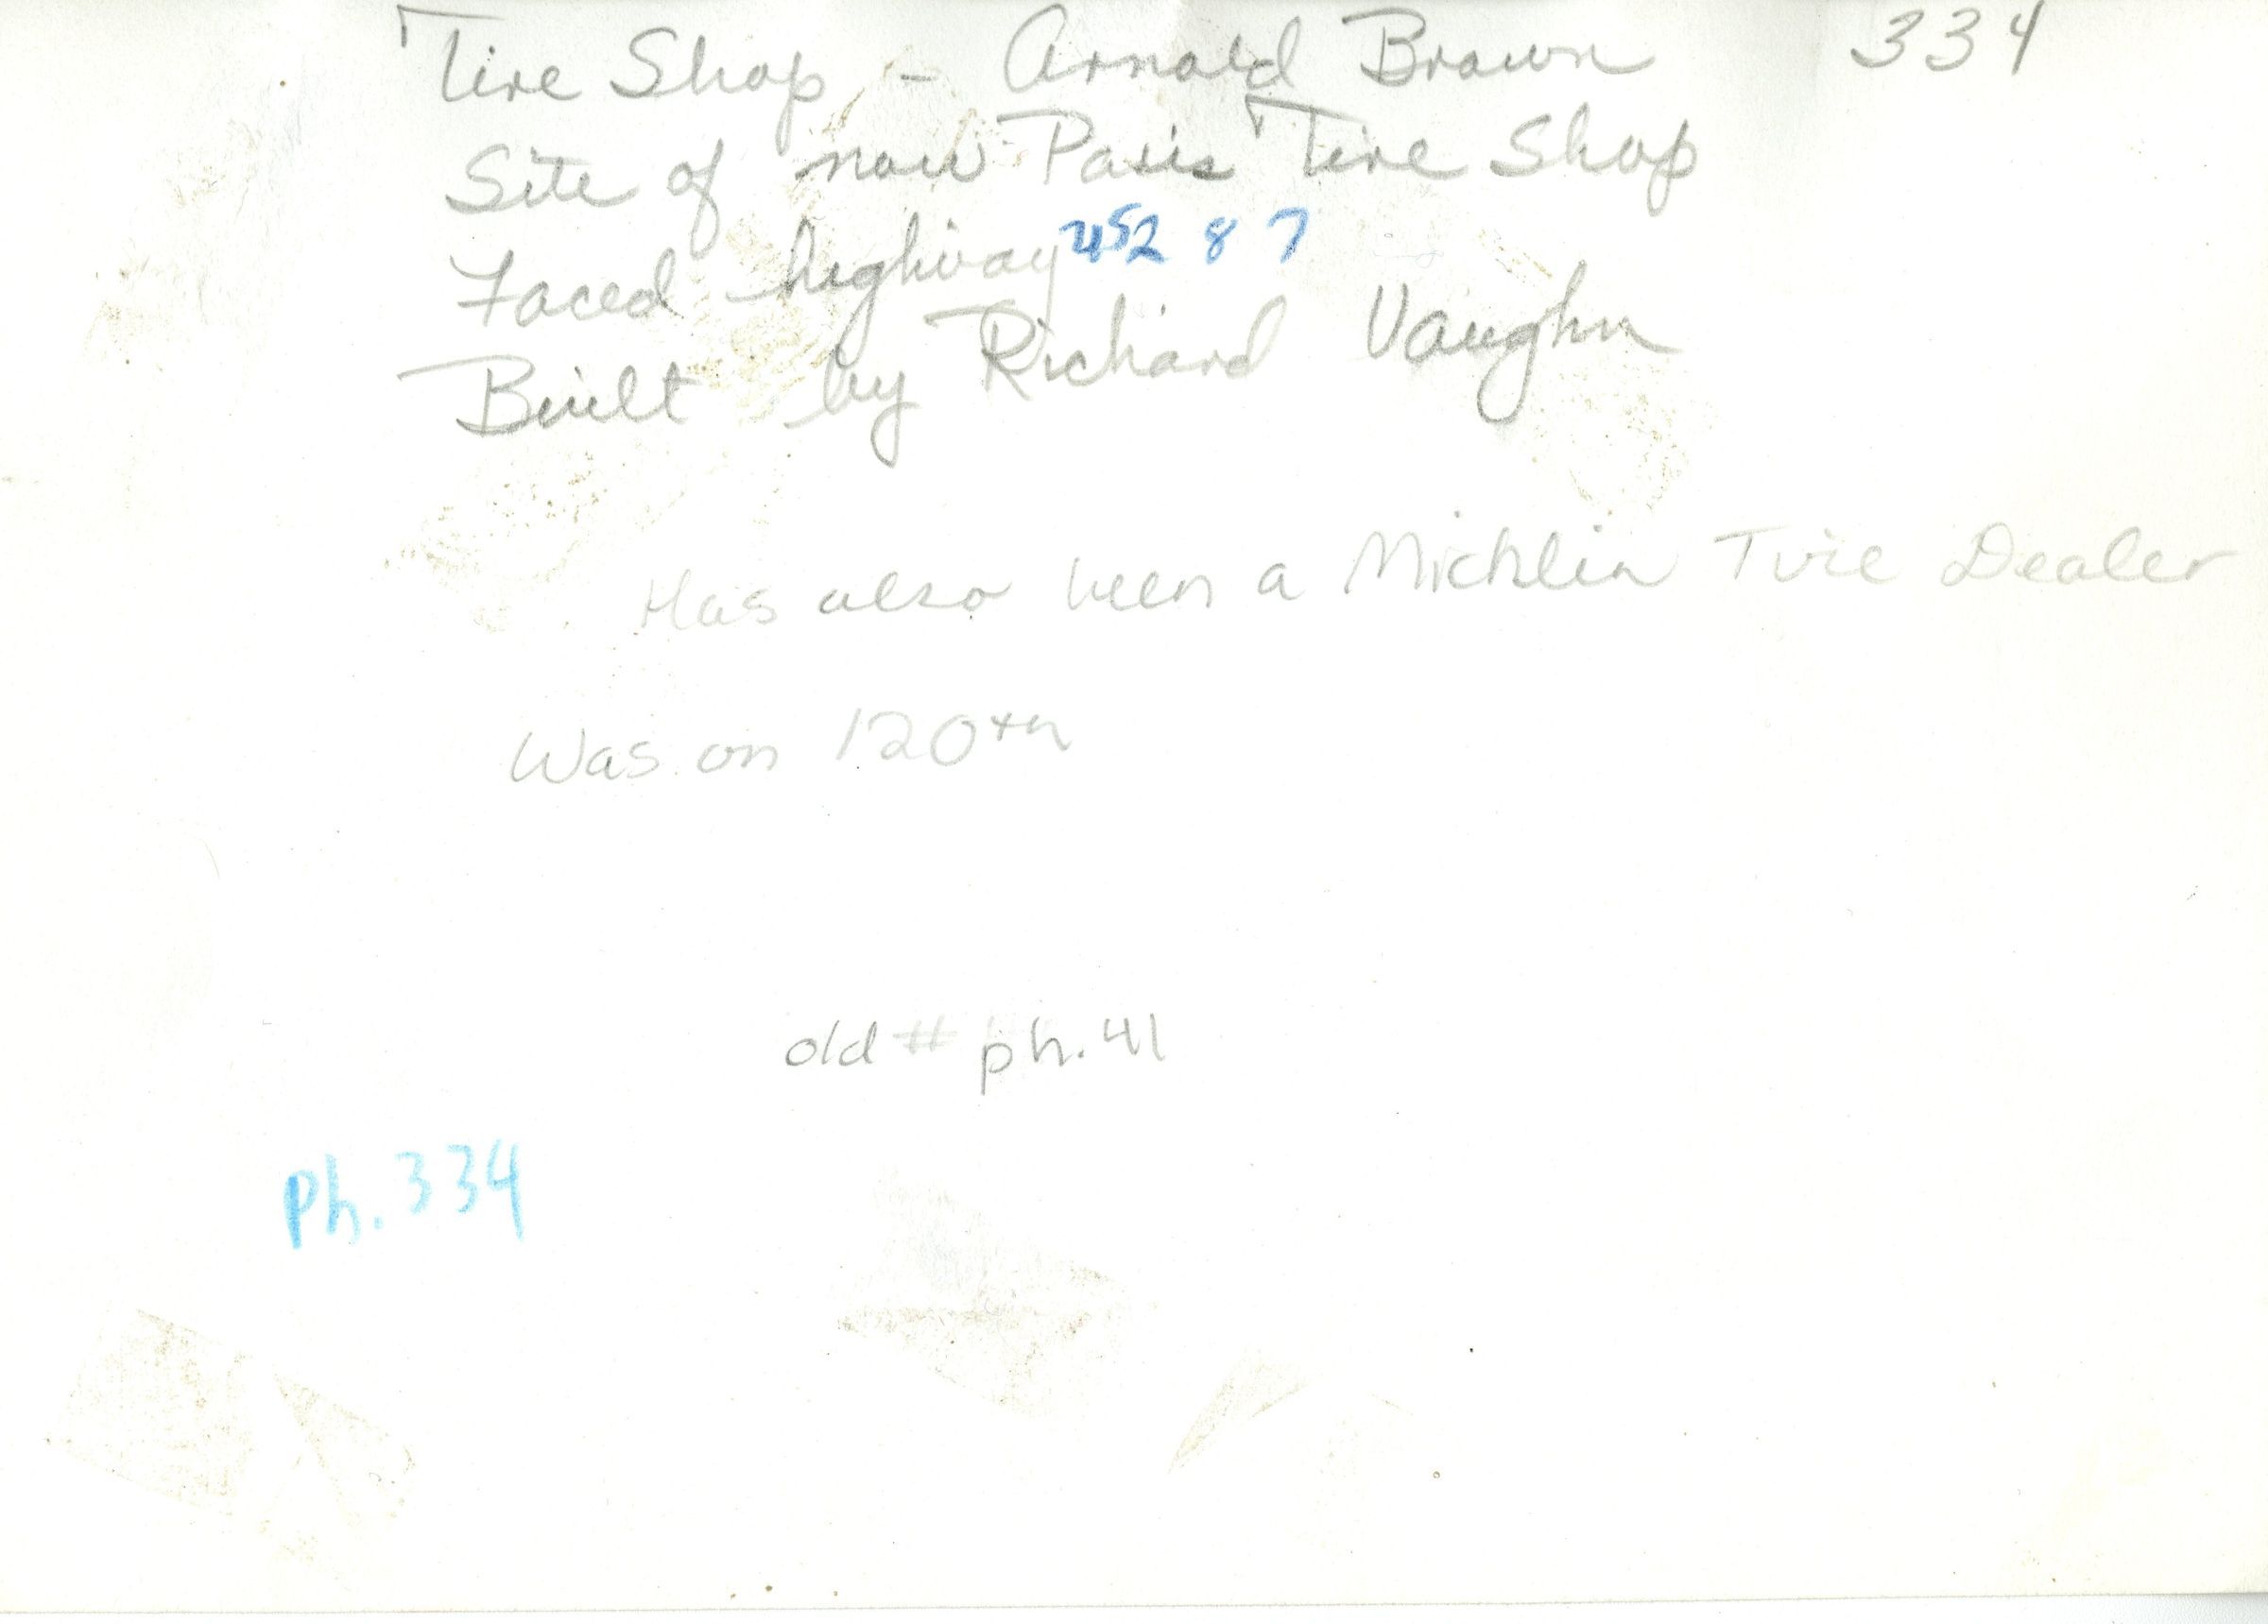 Tire Shop - Arnold Brown 334
Site of now Paris Tire Shop
Faced highway US 287
Built by Richard Vaughn
Has also been a Michlin Tire Dealer
Was on 120th
old # ph. 41
Ph. 334